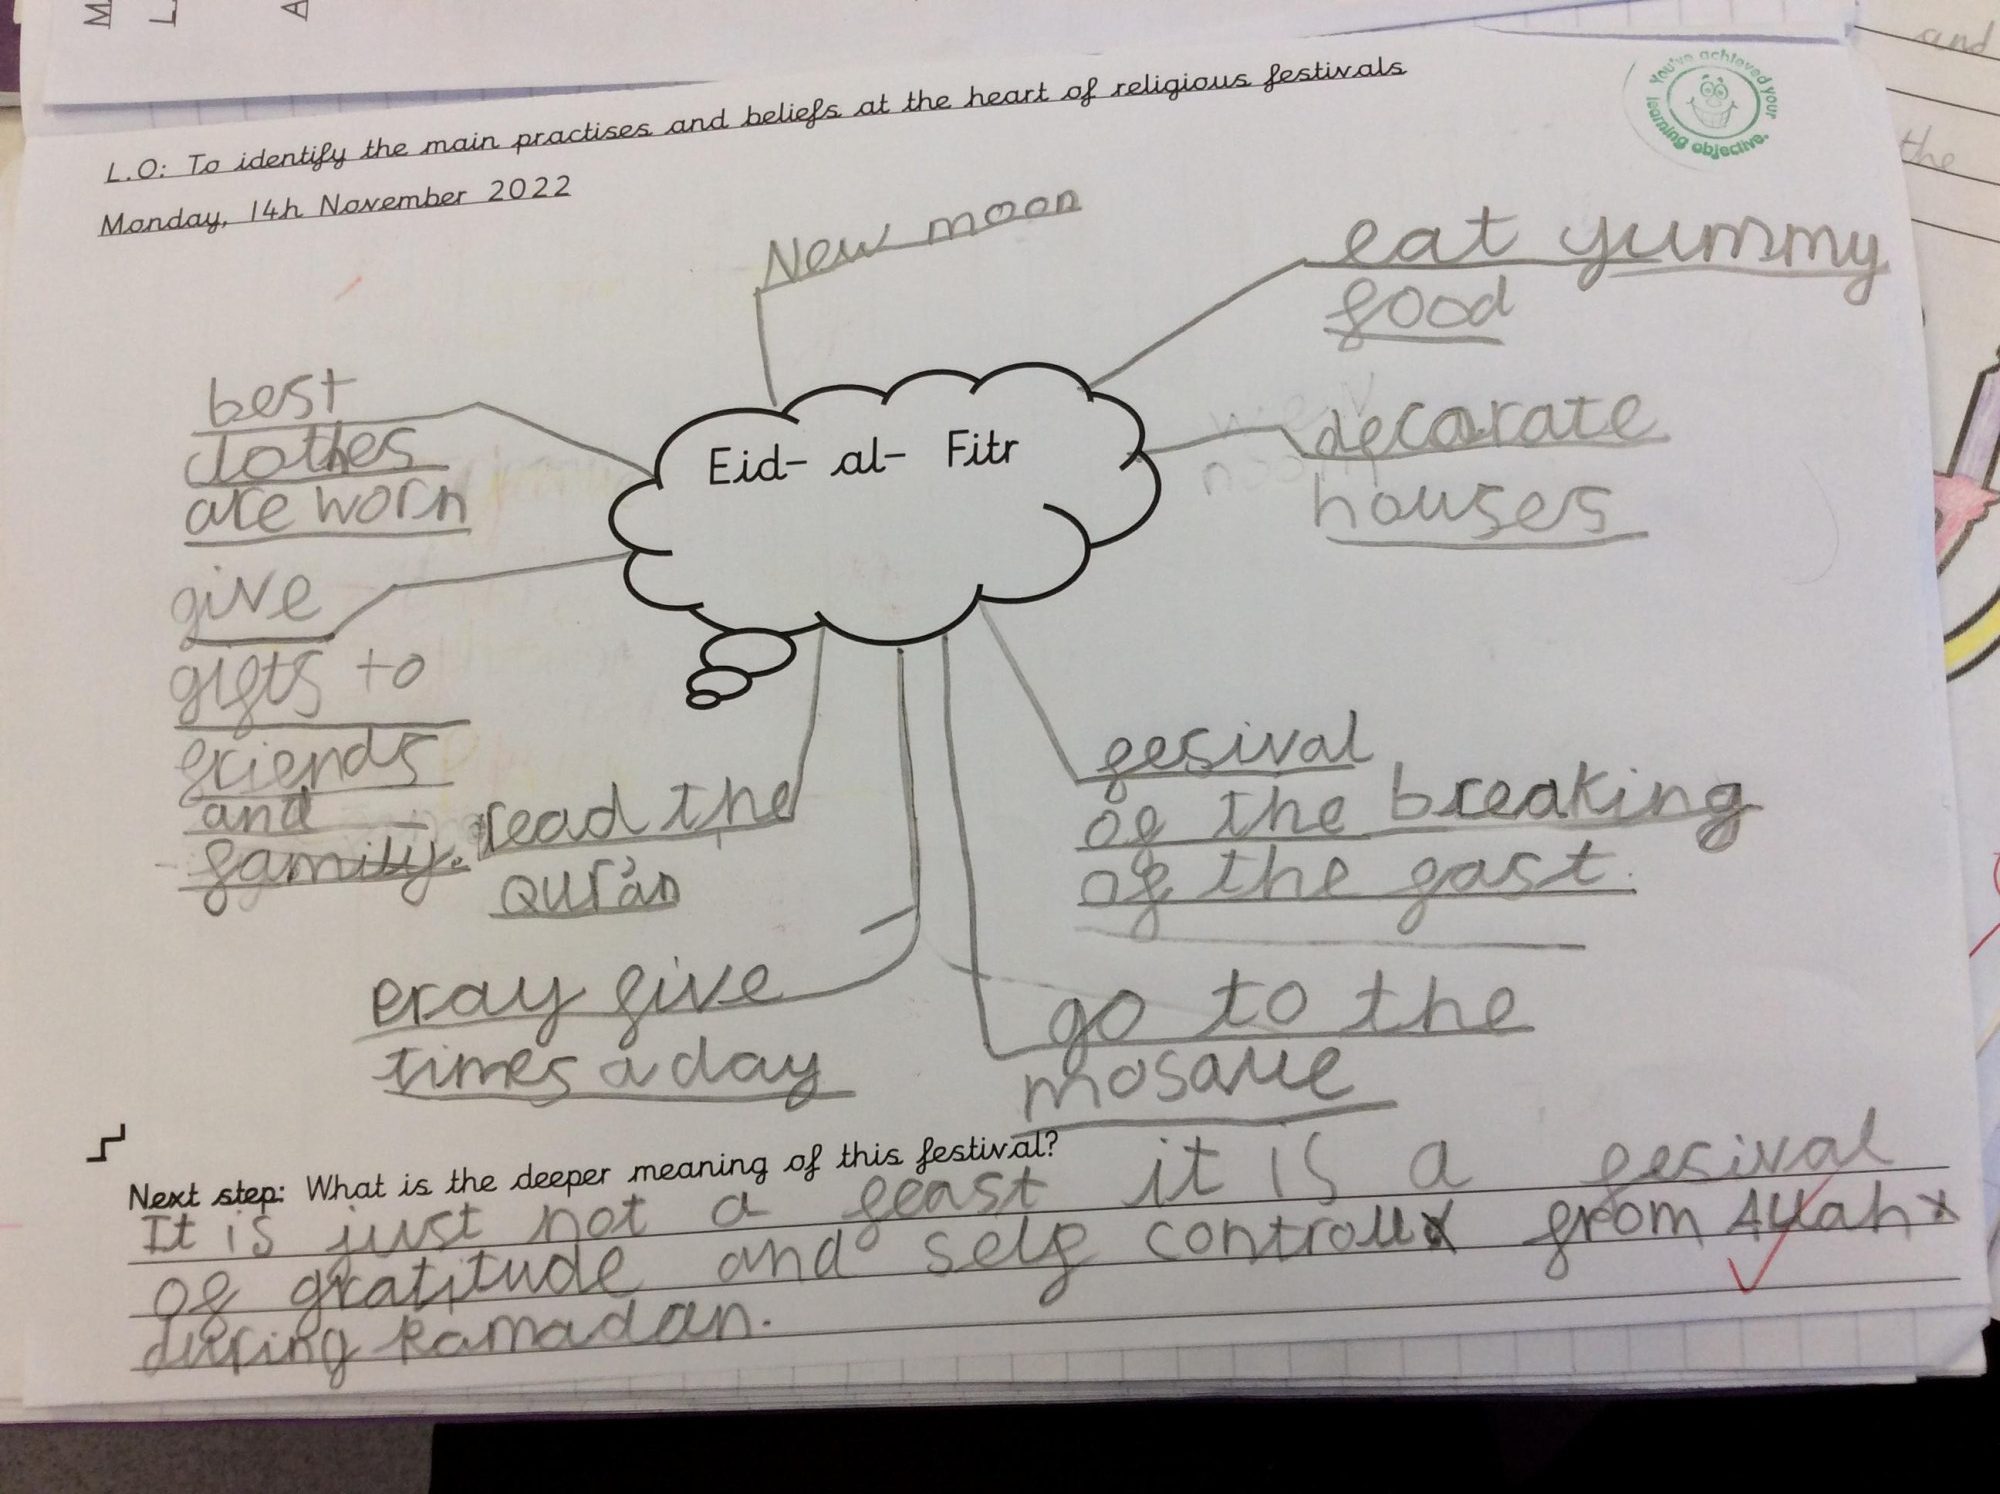 M
L
A
and
the
L.O: To identify the main practises and beliefs at the heart of religious festivals
You've achieved your learning objective.
Monday, 14h November 2022
New moon
eat yummy
food
best
clothes
are worn
Eid- al- Fitr
decorate
houses
give
gifts to
friends
and
family.
read the
Qur'an
fesival
of the breaking
of the fast.
pray five
times a day
go to the
mosque
Next step: What is the deeper meaning of this festival?
It is just not a feast it is a fesival
of gratitude and self controll from Allah
during Ramadan.